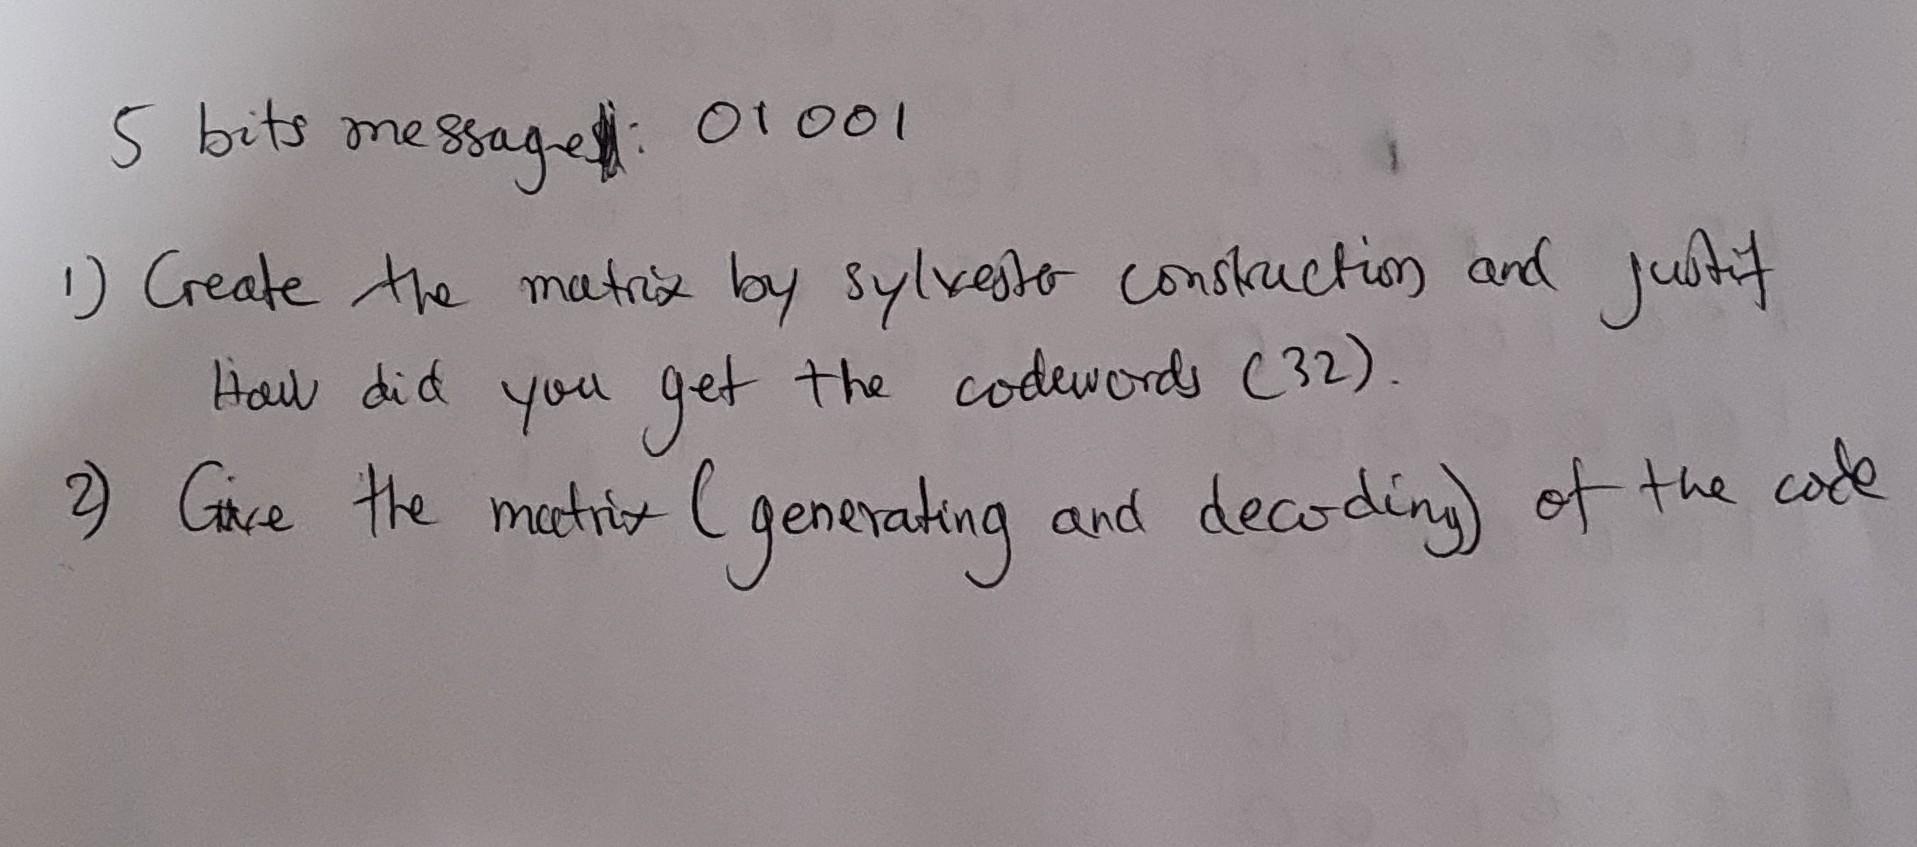 5 bits message: 01001
1) Create the matrix by sylvester construction and justif
How did you get the codewords (32).
2) Give the matrix (generating and decoding) of the code